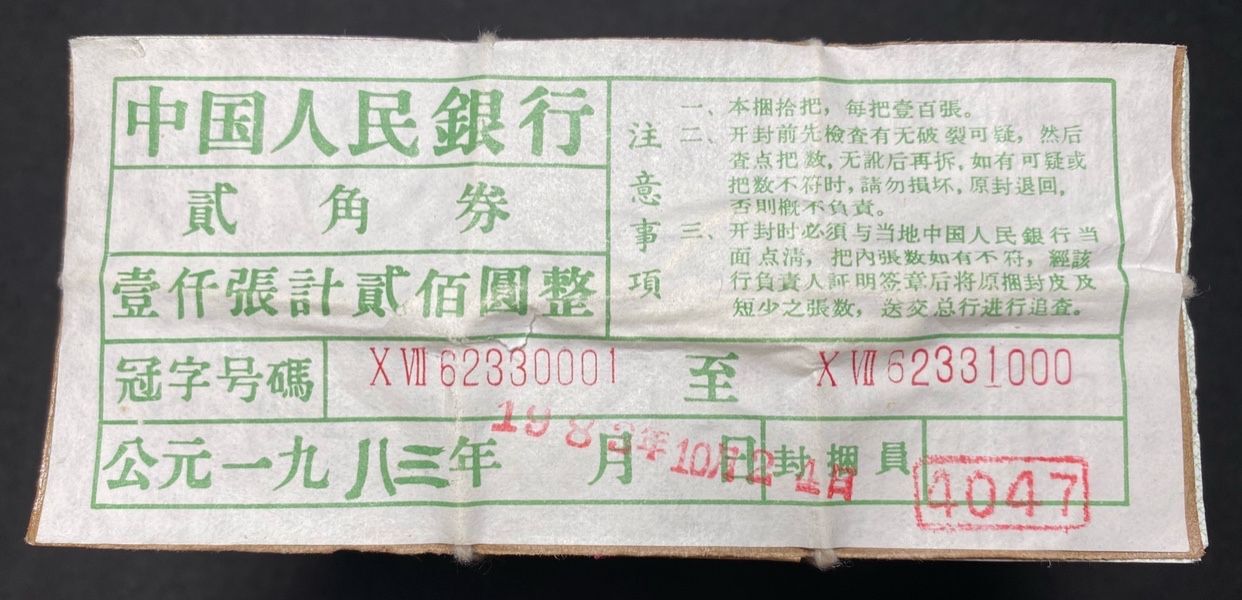 中国人民銀行
貳角券
壹仟張計貳佰圓整
注意事項
一、本捆拾把，每把壹百張。
二、开封前先檢查有无破裂可疑，然后
查点把数，无訛后再拆，如有可疑或
把数不符时，請勿損坏，原封退回，
否則概不負責。
三、开封时必須与当地中国人民銀行当
面点清，把內張数如有不符，經該
行負責人証明签章后将原捆封皮及
短少之張数，送交总行进行追查。
冠字号碼 XⅦ62330001 至 XⅦ62331000
公元一九八三年 月 日 封捆員
1983年10月21日
4047